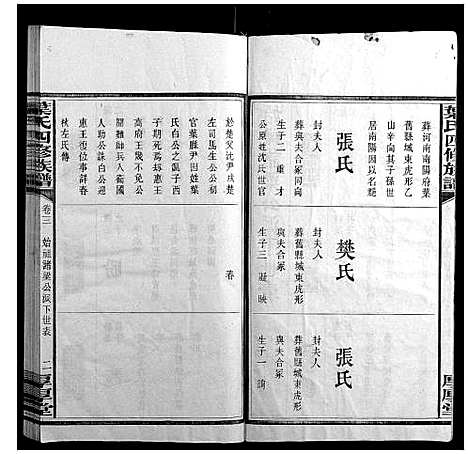 葉氏四修族譜
葬河南南陽府葉
舊縣城東虎形乙
山辛向其子孫世
居南陽因以名堂
張氏
封夫人
葬與夫合冢同向
生子二 重 才
公原姓沈氏世官
樊氏
封夫人
葬舊縣城東虎形
與夫合冢
生子三
張氏
封夫人
葬舊縣城東虎形
與夫合冢
生子一 詢
於楚父沈尹戌楚
左司馬生公公初
官葉縣尹因姓葉
氏白公之亂子西
子期死焉劫惠王
高府王幾不免公
閭難師兵入衛國
人助公誅白公迎
惠王復位事詳春
秋左氏傳
葉氏四修族譜
卷三 始祖諸梁公派下世表
二
厚堂